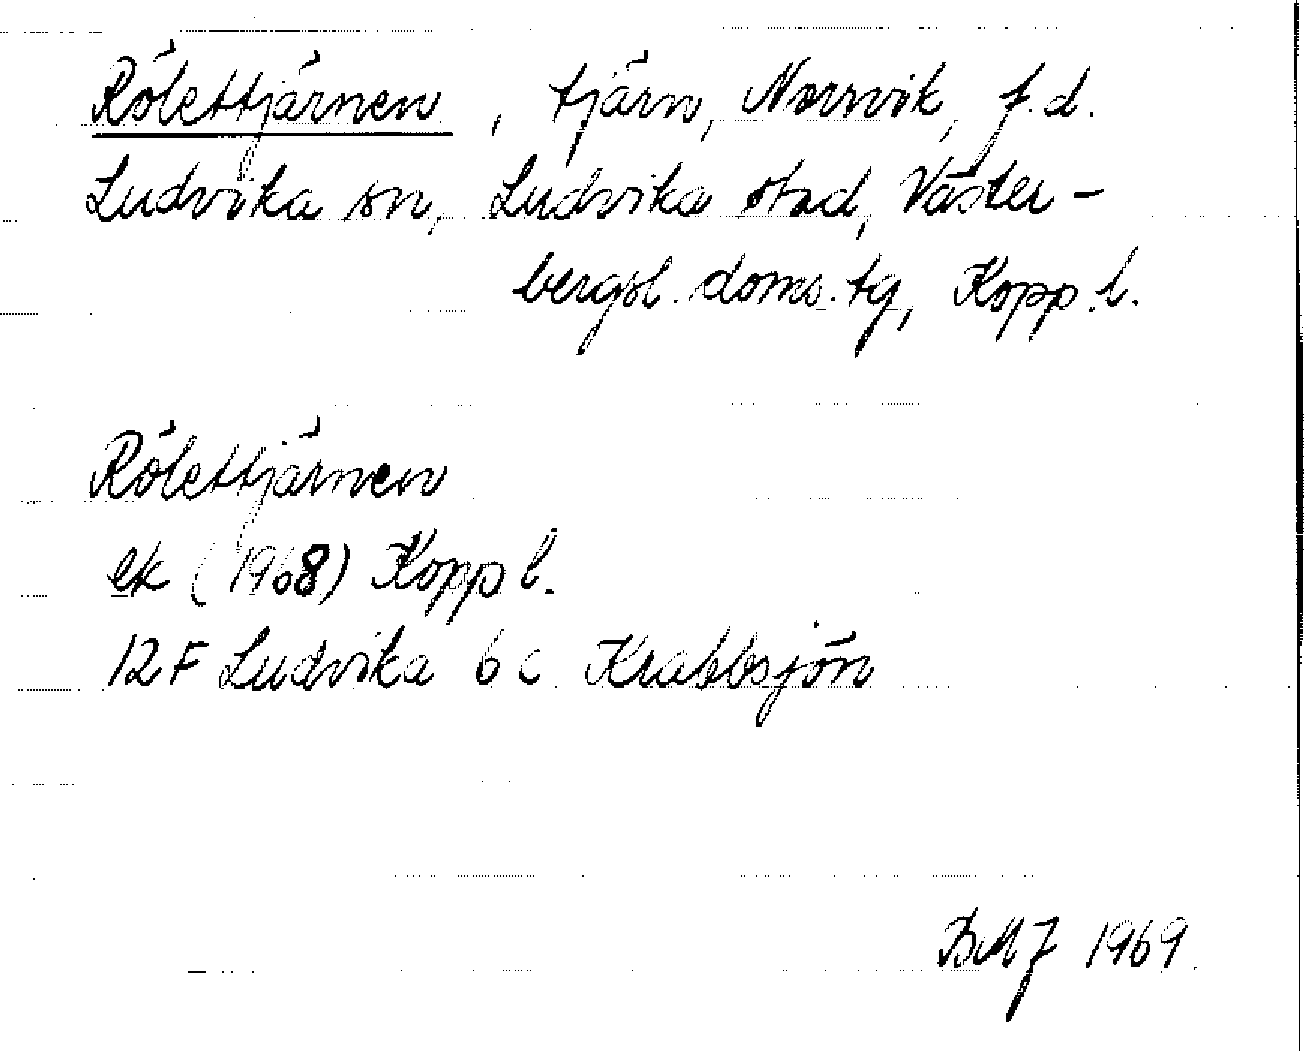 Rölettjärnen, tjärn, Norrvik, f.d.
Ludvika sn, Ludvika stad, Väster-
bergsl. doms. tg, Kopp. l.
Rölettjärnen
ek (1968) Kopp l.
12 F Ludvika 6 c Krabbsjön
BMJ 1969